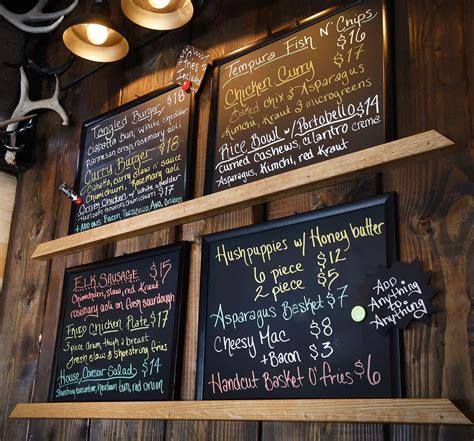 Yummy
Fries
Include
Tangled Burger $18
Ciabatta Bun, white cheddar
Parmesan crisp, rosemary aoli
Curry Burger $18
Ciabatta, curry slaw n' sauce
Chimichurri, Rosemary aoli
Crispy Chicken w/ white cheddar
Heirloom tomatoes, Chimichurri, Kraut $17
Bacon, Avo, Onions
Tempura Fish N' Chips
$16
Chicken Curry $16
Baked chix & Asparagus
Kimchi, Kraut & microgreens
Rice Bowl w/ Portobello $14
Curried Cashews, cilantro creme
Asparagus, Kimchi, red Kraut
Elk Sausage $15
Chimichurri, slaw, red Kraut
rosemary aoli on fresh sourdough
Fried Chicken Plate $17
3 piece drum, thigh & breast
fresh slaw & shoestring fries
House Caesar Salad $14
Shoestring cucumber, heirloom tom, red onion
Hushpuppies w/ Honey butter
6 piece $12
2 piece $5
Asparagus Basket $7
Cheesy Mac $8
+Bacon $3
Handcut Basket O' fries $6
Add
Anything
to
Anything